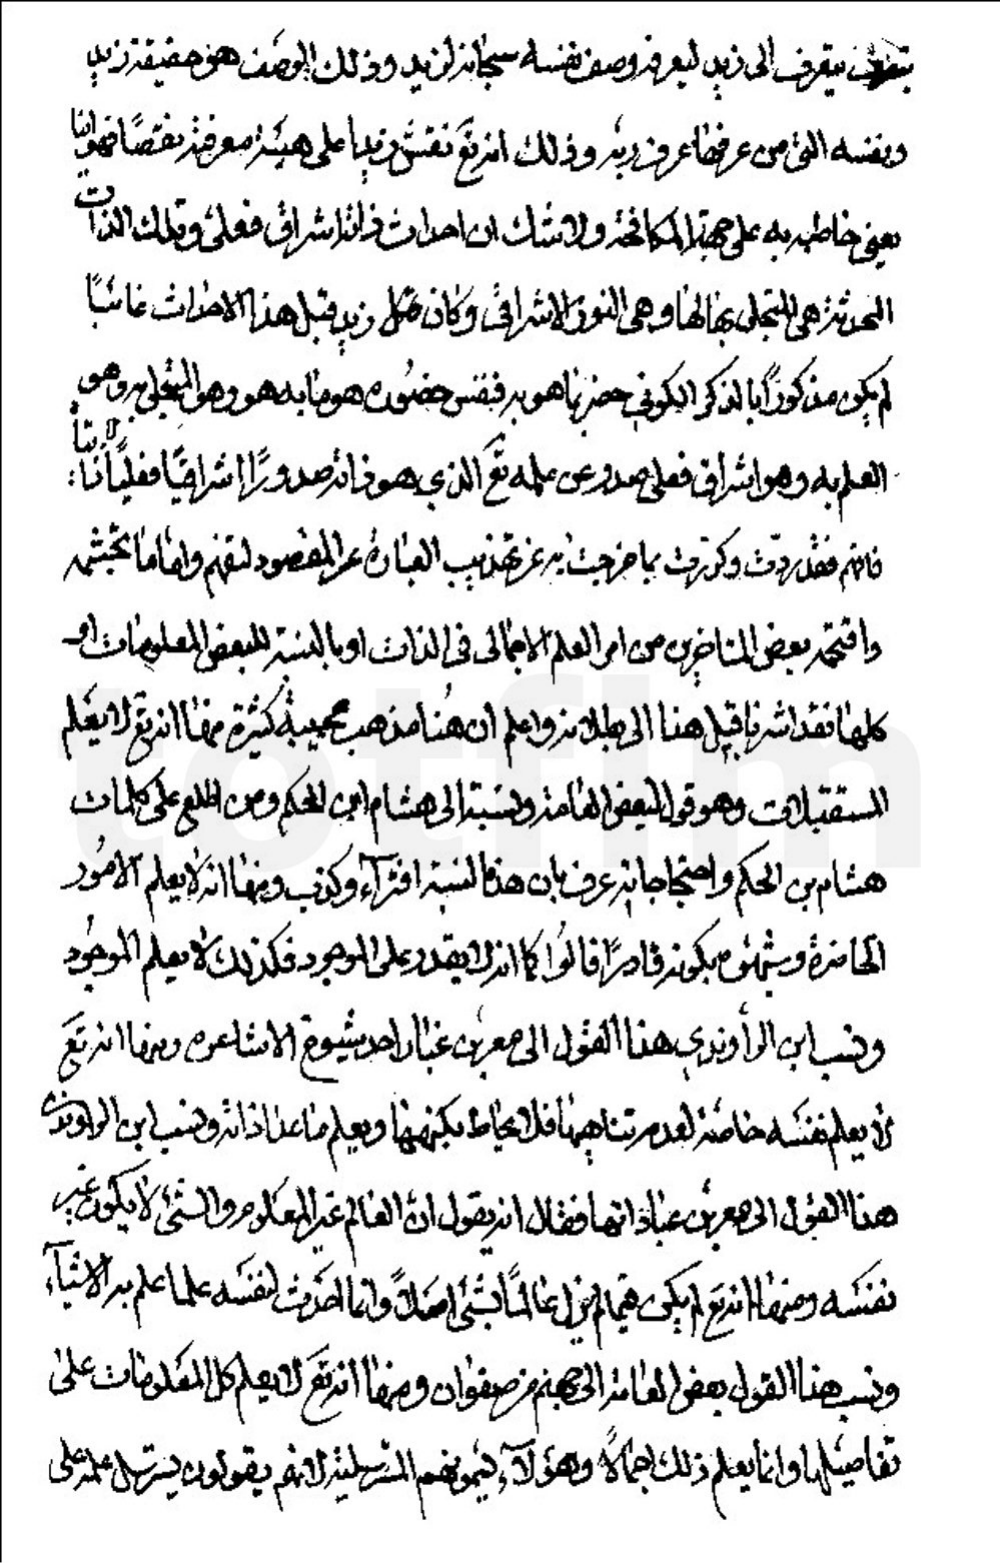 يتعرف فيتعرف الى زيد ليعرفه وصف نفسه سبحانه لزيد وذلك الوصف هو حقيقة زيد
ونفسه التي من عرفها عرف ربه وذلك انه تع نقش زيدا على هيئة معرفته نقصا فهوانيا
يعني خاطبه به على جهة المكافحة ولا شك ان احداث ذاته اشراقي فعلي وتلك الذات
المحدثة هي المتجلى بها لها وهي النور الاشراقي وكان قبل زيد قبل هذا الاحداث غائبًا
لم يكن مذكورًا بالذكر الكوني حضر بما هو به فنفس حضوره هو ما به هو وهو المتجلى به وهو
العلم به وهو اشراق فعلي صدور عن علمه تع الذي هو ذاته صدورًا اشراقيًا فعليًا لا ذاتيا
فافهم فقد رددت وكررت بما خرجت به عن تهذيب العبارة عن المقصود لتفهم واما ما تجشمه
واقتحمه بعض المتاخرين من امر العلم الاجمالي في الذات او بالنسبة لبعض المعلومات او
كلها فقد اشرنا قبل هذا الى بطلانه واعلم ان هنا مذهب عجيبة كثيرة منها انه تع لا يعلم
المستقبلات وهو قول لبعض العامة ونسبة الى هشام ابن الحكم ومن اطلع على كلمات
هشام بن الحكم واحتجاجاته عرف بان هذه النسبة افتراء وكذب ومنها انه لا يعلم الامور
الحاضرة وشبهتهم بكونه قادرًا قالوا كما انه لا يقدر على الموجود فكذلك لا يعلم الموجود
ونسب ابن الراوندي هذا القول الى معمر بن عباد احد شيوخ الاشاعره ومنها انه تع
لا يعلم نفسه خاصة لعدم تناهيها فلا يحاط بكنهها ويعلم ما عدا ذاته ونسب ابن الراوندي
هذا القول الى معمر بن عباد ايضا فقال انه يقول ان العالم غير المعلوم والشئ لا يكون غير
نفسه ومنها انه تع لم يكن فيما لم يزل عالمًا بشئ اصلاً وانما احدث لنفسه علما علم به الاشياء
ونسب هذا القول بعض العامة الى جهم بن صفوان ومنها انه تع لا يعلم كل المعلومات على
تفاصيلها وانما يعلم ذلك اجمالاً وهؤلاء يسمونهم المسترسلية لانهم يقولون يسترسل علمه على